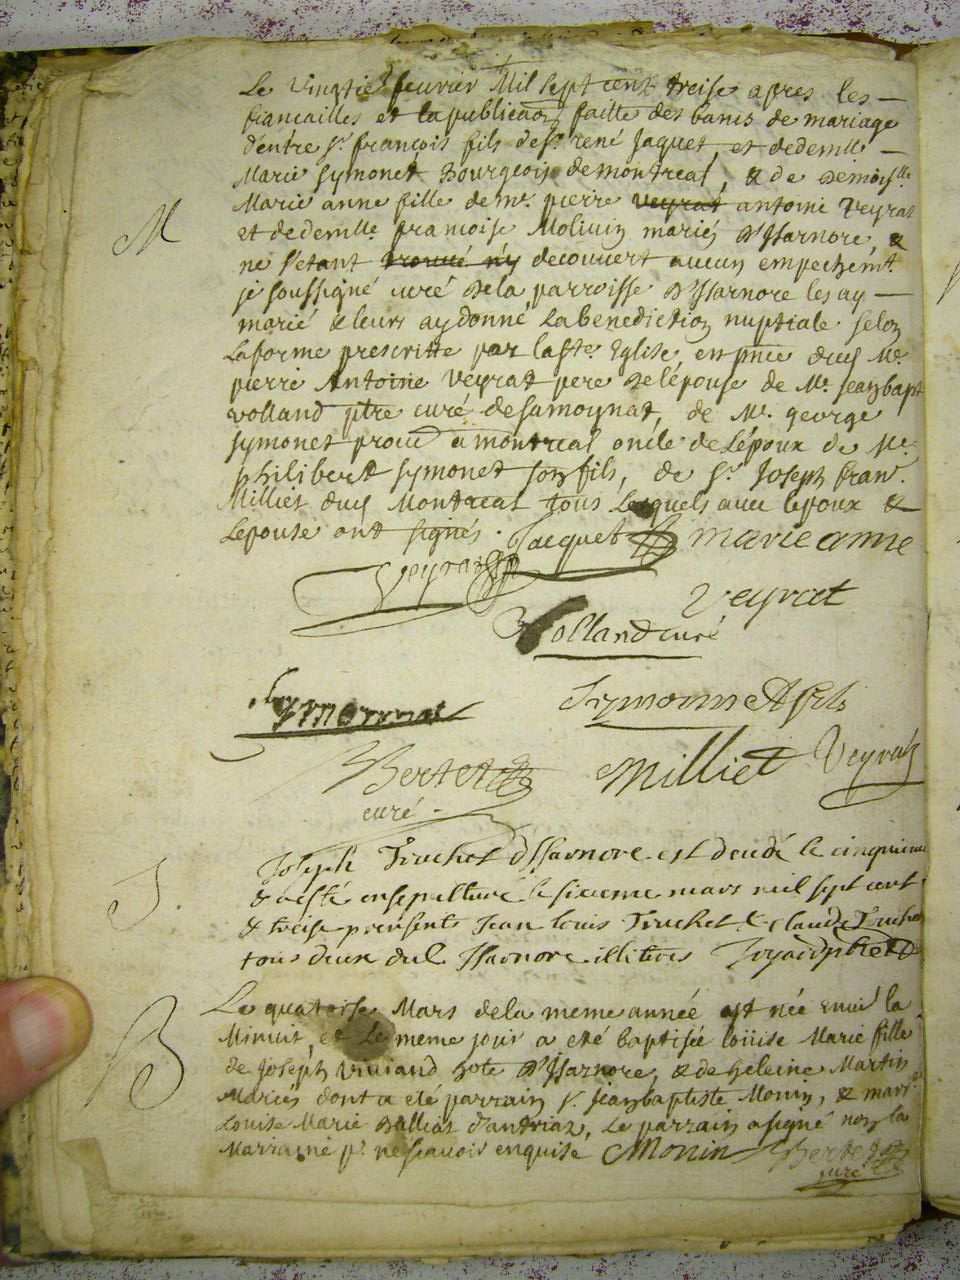 Le vingtie fevrier Mil sept cent treise apres les
fiancailles et la publicaon faitte des bancs de mariage
d'entre sr. françois fils de sr. rené Jaquet, et de demlle
Marie symonet Bourgeois de montreal, & de Demoislle
Marie anne fille de mr. pierre veyrat antoine Veyrat
et de demlle. francoise Molinin mariés D'Isarnore, &
ne s'etant trouvé n'y decouvert aucun empechemt.
je soussigné curé de la parroisse D'Isarnore les ay
marié & leurs ay donné la benediction nuptiale selon
la forme prescritte par la ste. Eglise, en pnce dud Mr.
pierre Antoine Veyrat pere de l'épouse de Mr. Jean bapt
volland ptre curé de samognat, de Mr. george
symonet procu a montreal oncle de l'époux de Mr.
philibert symonet son fils, de sr. Joseph fran.
Milliet dud Montreal tous lesquels avec l'epoux &
l'epouse ont signés. Jacquet marie anne
Veyrat
Veyrat
Volland curé
Symonnet
Symonnet fils
Bertet Milliet Veyrat
curé
M
Joseph Truchet d'Isarnore est decedé le cinquieme
& a esté ensepulturé le sixieme mars mil sept cent
& treise presents Jean Louis Truchet & Claude Truchet
tous deux dud Isarnore illiteres
S.
Le quatorse Mars de la meme année est née environ la
Minuit, et le meme jour a eté baptisée louise Marie fille
de Joseph Viviand hote D'Isarnore, & de heleine Martin
Mariés dont a eté parrain sr. Jean baptiste Monin, & marr
Louise Marie Balliat d'antriaz, Le parrain a signé non la
Marraine pr. ne scavoir enquise Monin Bertet
curé
B